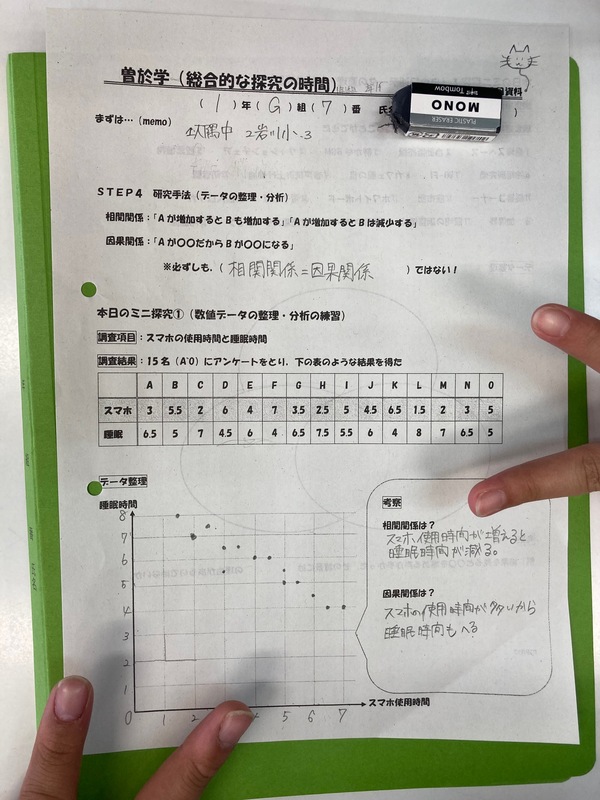 曽於学（総合的な探究の時間）
資料
（ 1 ）年（ G ）組（ 7 ）番
まずは…（memo）
2岩川小 3
MONO
PLASTIC ERASER
Tombow
STEP4 研究手法（データの整理・分析）
相関関係：「Aが増加するとBも増加する」「Aが増加するとBは減少する」
因果関係：「Aが〇〇だからBが〇〇になる」
※必ずしも、（ 相関関係=因果関係 ）ではない！
本日のミニ探究①（数値データの整理・分析の練習）
調査項目：スマホの使用時間と睡眠時間
調査結果：15名（A~O）にアンケートをとり、下の表のような結果を得た
A B C D E F G H I J K L M N O
スマホ 3 5.5 2 6 4 7 3.5 2.5 5 4.5 6.5 1.5 2 3 5
睡眠 6.5 5 7 4.5 6 4 6.5 7.5 5.5 6 4 8 7 6.5 5
データ整理
睡眠時間
8
7
6
5
4
3
2
1
0 1 2 4 5 6 7
スマホ使用時間
考察
相関関係は？
スマホ使用時間が増えると
睡眠時間が減る。
因果関係は？
スマホの使用時間が多いから
睡眠時間もへる